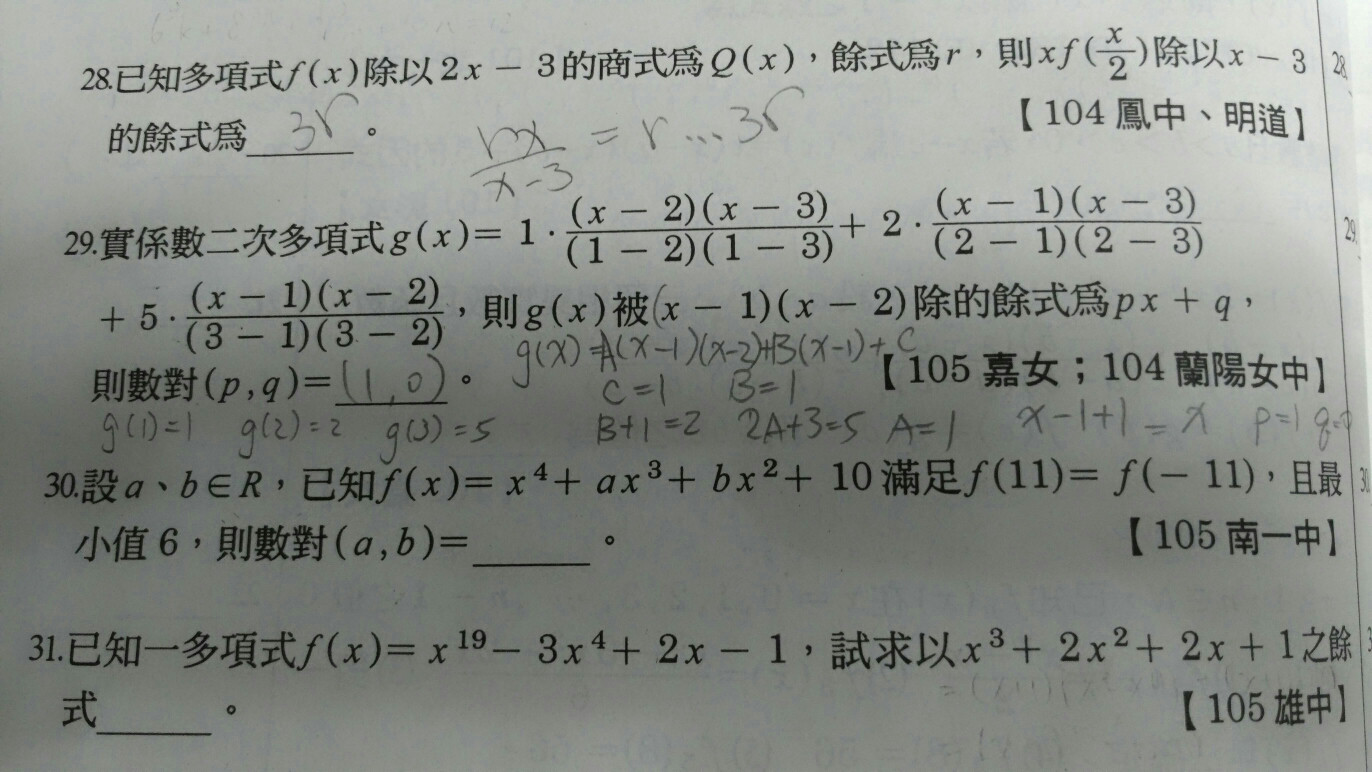 28.已知多項式f(x)除以2x－3的商式爲Q(x)，餘式爲r，則xf(x/2)除以x－3
的餘式爲 3r 。 【104 鳳中、明道】
rx/(x-3) = r ... 3r
29.實係數二次多項式g(x)= 1·(x－2)(x－3)/(1－2)(1－3) + 2·(x－1)(x－3)/(2－1)(2－3)
+ 5·(x－1)(x－2)/(3－1)(3－2)，則g(x)被(x－1)(x－2)除的餘式爲px + q，
g(x)=A(x-1)(x-2)+B(x-1)+C
則數對(p,q)= (1,0) 。 【105 嘉女；104 蘭陽女中】
C=1 B=1
g(1)=1 g(2)=2 g(3)=5 B+1=2 2A+3=5 A=1 x-1+1=x p=1 q=0
30.設a、b∈R，已知f(x)= x⁴+ ax³+ bx²+ 10 滿足f(11)= f(－11)，且最
小值 6，則數對(a,b)=______。 【105 南一中】
31.已知一多項式f(x)= x¹⁹－ 3x⁴+ 2x － 1，試求以x³+ 2x²+ 2x + 1之餘
式______。 【105 雄中】
28
29